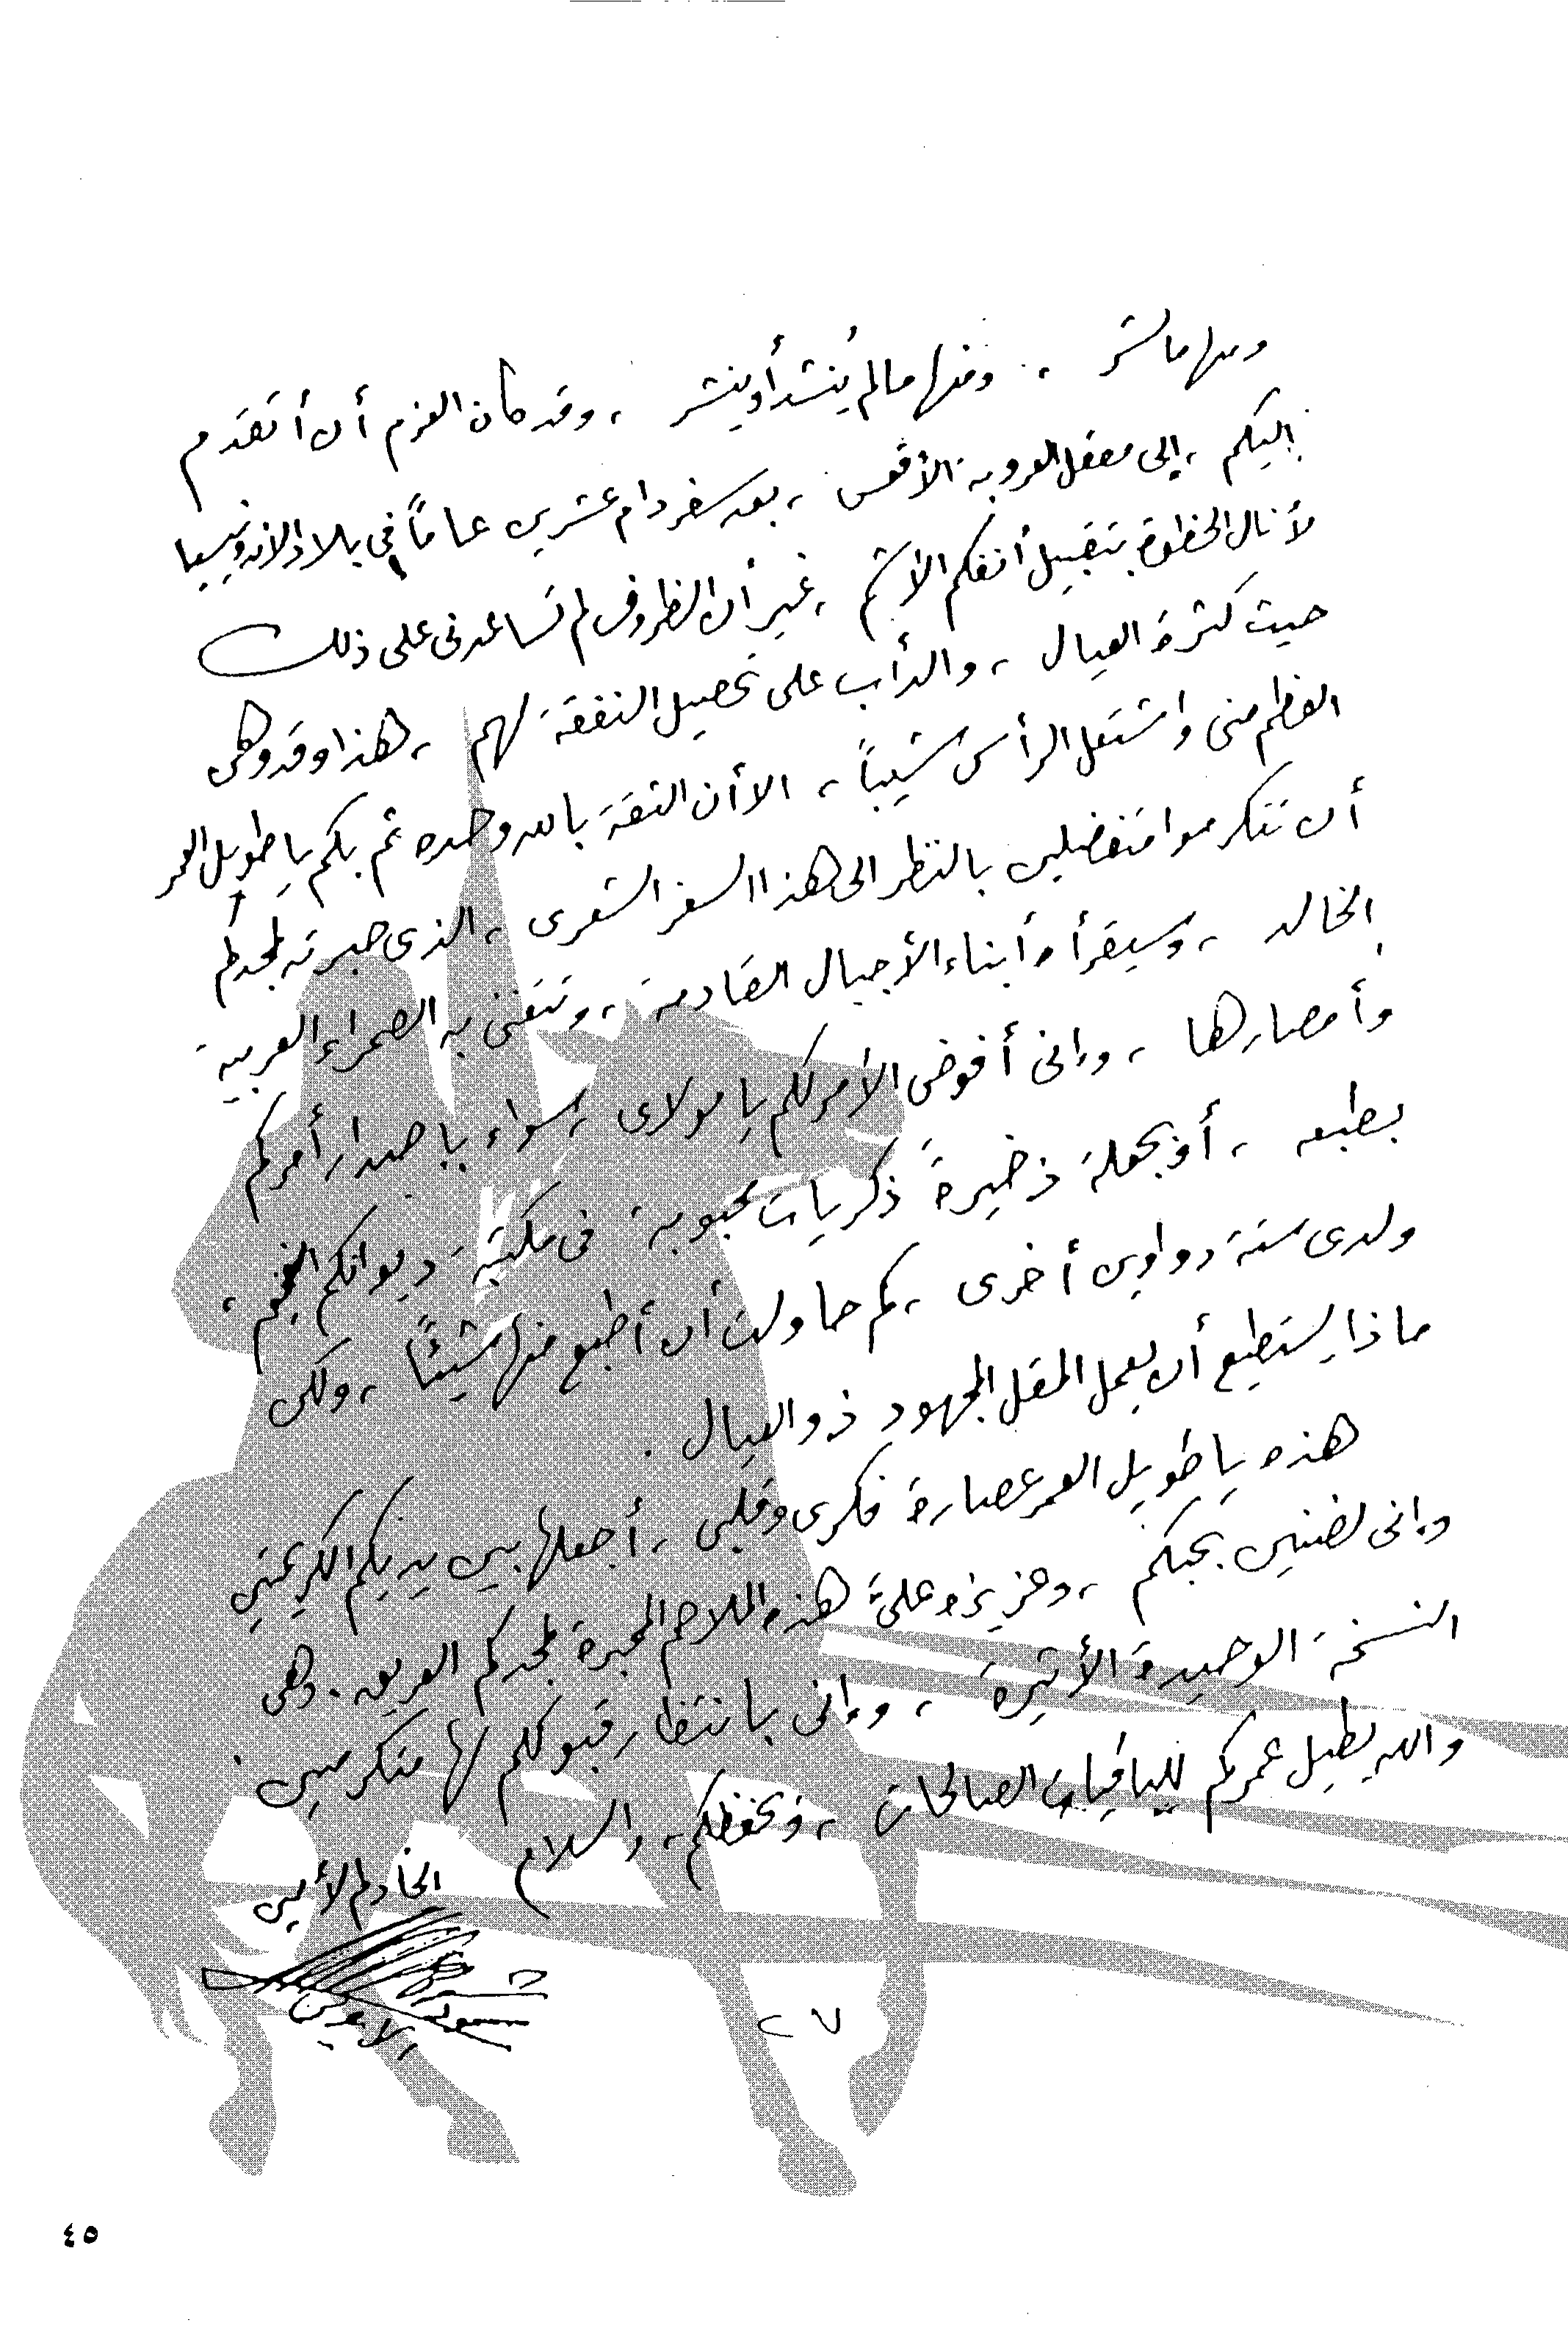 ومنها ما نشر ، ومنها ما لم يُنشد أو ينشر ، وقد كان العزم أن أتقدم
إليكم ، إلى معقل العروبة الأقعس ، بعد سفر دام عشرين عاماً في بلاد الاندونيسيا
لأنال الحظوة بتقبيل أنفكم الأشم ، غير أن الظروف لم تساعدنى على ذلك
حيث كثرة العيال ، والدأب على تحصيل النفقة لهم ، هذا وقد وهى
العظم منى واشتعل الرأس شيباً ، الا أن الثقة بالله وحده ثم بكم يا طويل العمر
أن تتكرموا متفضلين بالنظر الى هذا السفر الشعرى ، الذى حبرته لمجدكم
الخالد ، وسيقرأه أبناء الأجيال القادمة ، وتتغنى به الصحراء العربية
وأمصارها ، وإنى أفوض الأمر لكم يا مولاى سواء بإصدار أمركم
بطبعه ، أو بجعله ذخيرةً ذكريات محبوبة فى مكتبة ديوانكم الفخم ،
ولدى ستة دواوين أخرى ، كم حاولت أن أطبع منها شيئاً ، ولكن
ماذا يستطيع أن يعمل المقل المجهود ذو العيال .
هذه يا طويل العمر عصارة فكرى وقلبى ، أجعلها بين يديكم الكريمتين
وإنى لضنين بحبكم ، وعزيزة علىّ هذه الملاحم المحبرة لمجدكم العريق . وهى
النسخة الوحيدة الأثيرة ، وإنى بانتظار قبولكم لها متكرمين .
والله يطيل عمركم للباقيات الصالحات ، ويحفظكم ، والسلام
الخادم الأمين
٢٧
٤٥